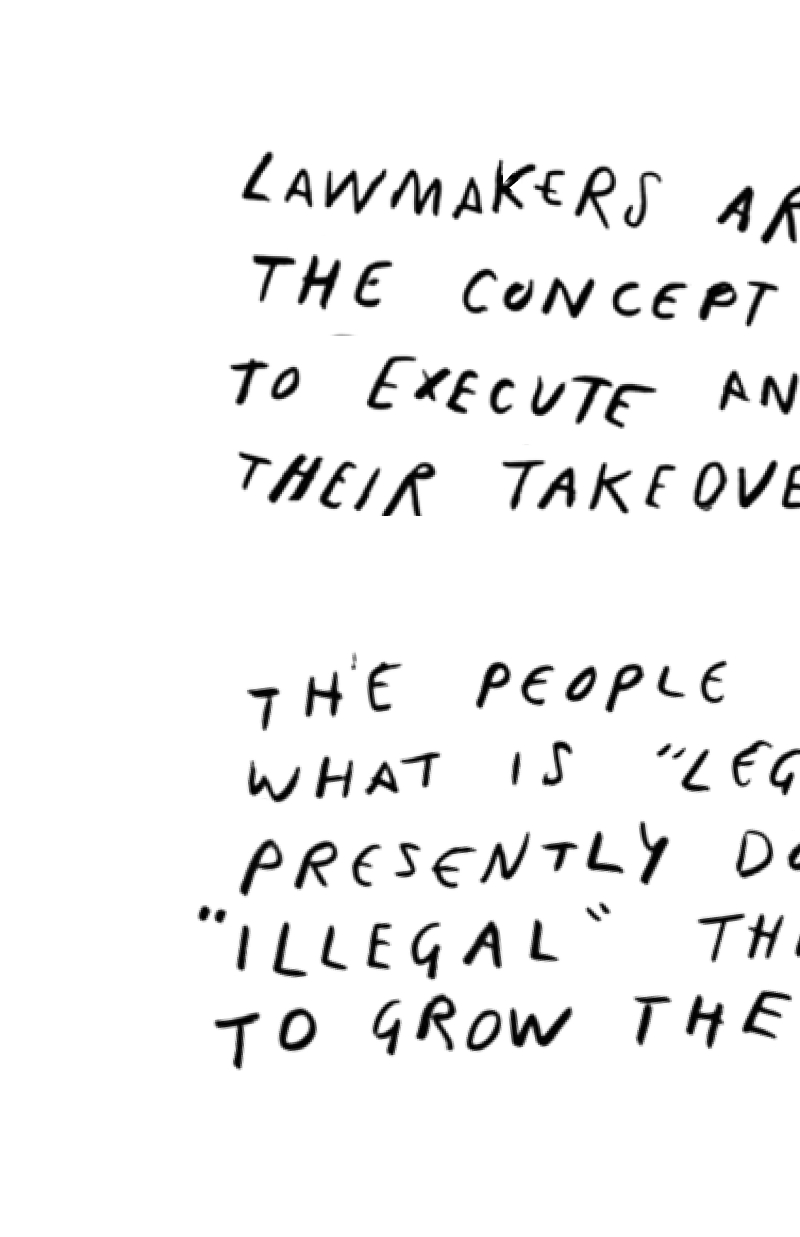 LAWMAKERS AR
THE CONCEPT
TO EXECUTE AN
THEIR TAKEOVE
THE PEOPLE
WHAT IS "LEG
PRESENTLY DO
"ILLEGAL" THE
TO GROW THE